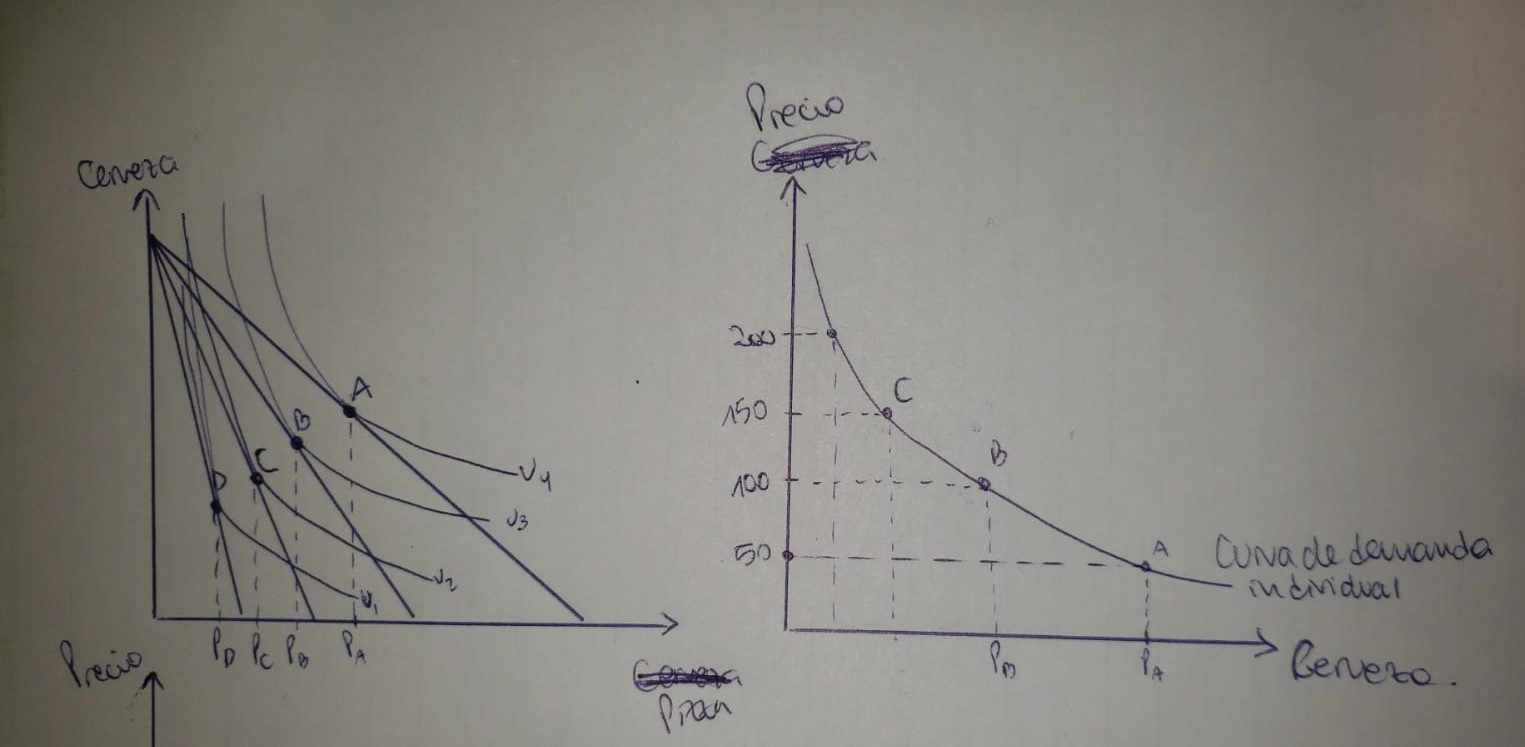 Cerveza
A
B
C
D
U4
U3
U2
U1
PD PC PB PA
Precio
Precio
200
150
100
50
C
B
A
Curva de demanda
individual
PB
PA